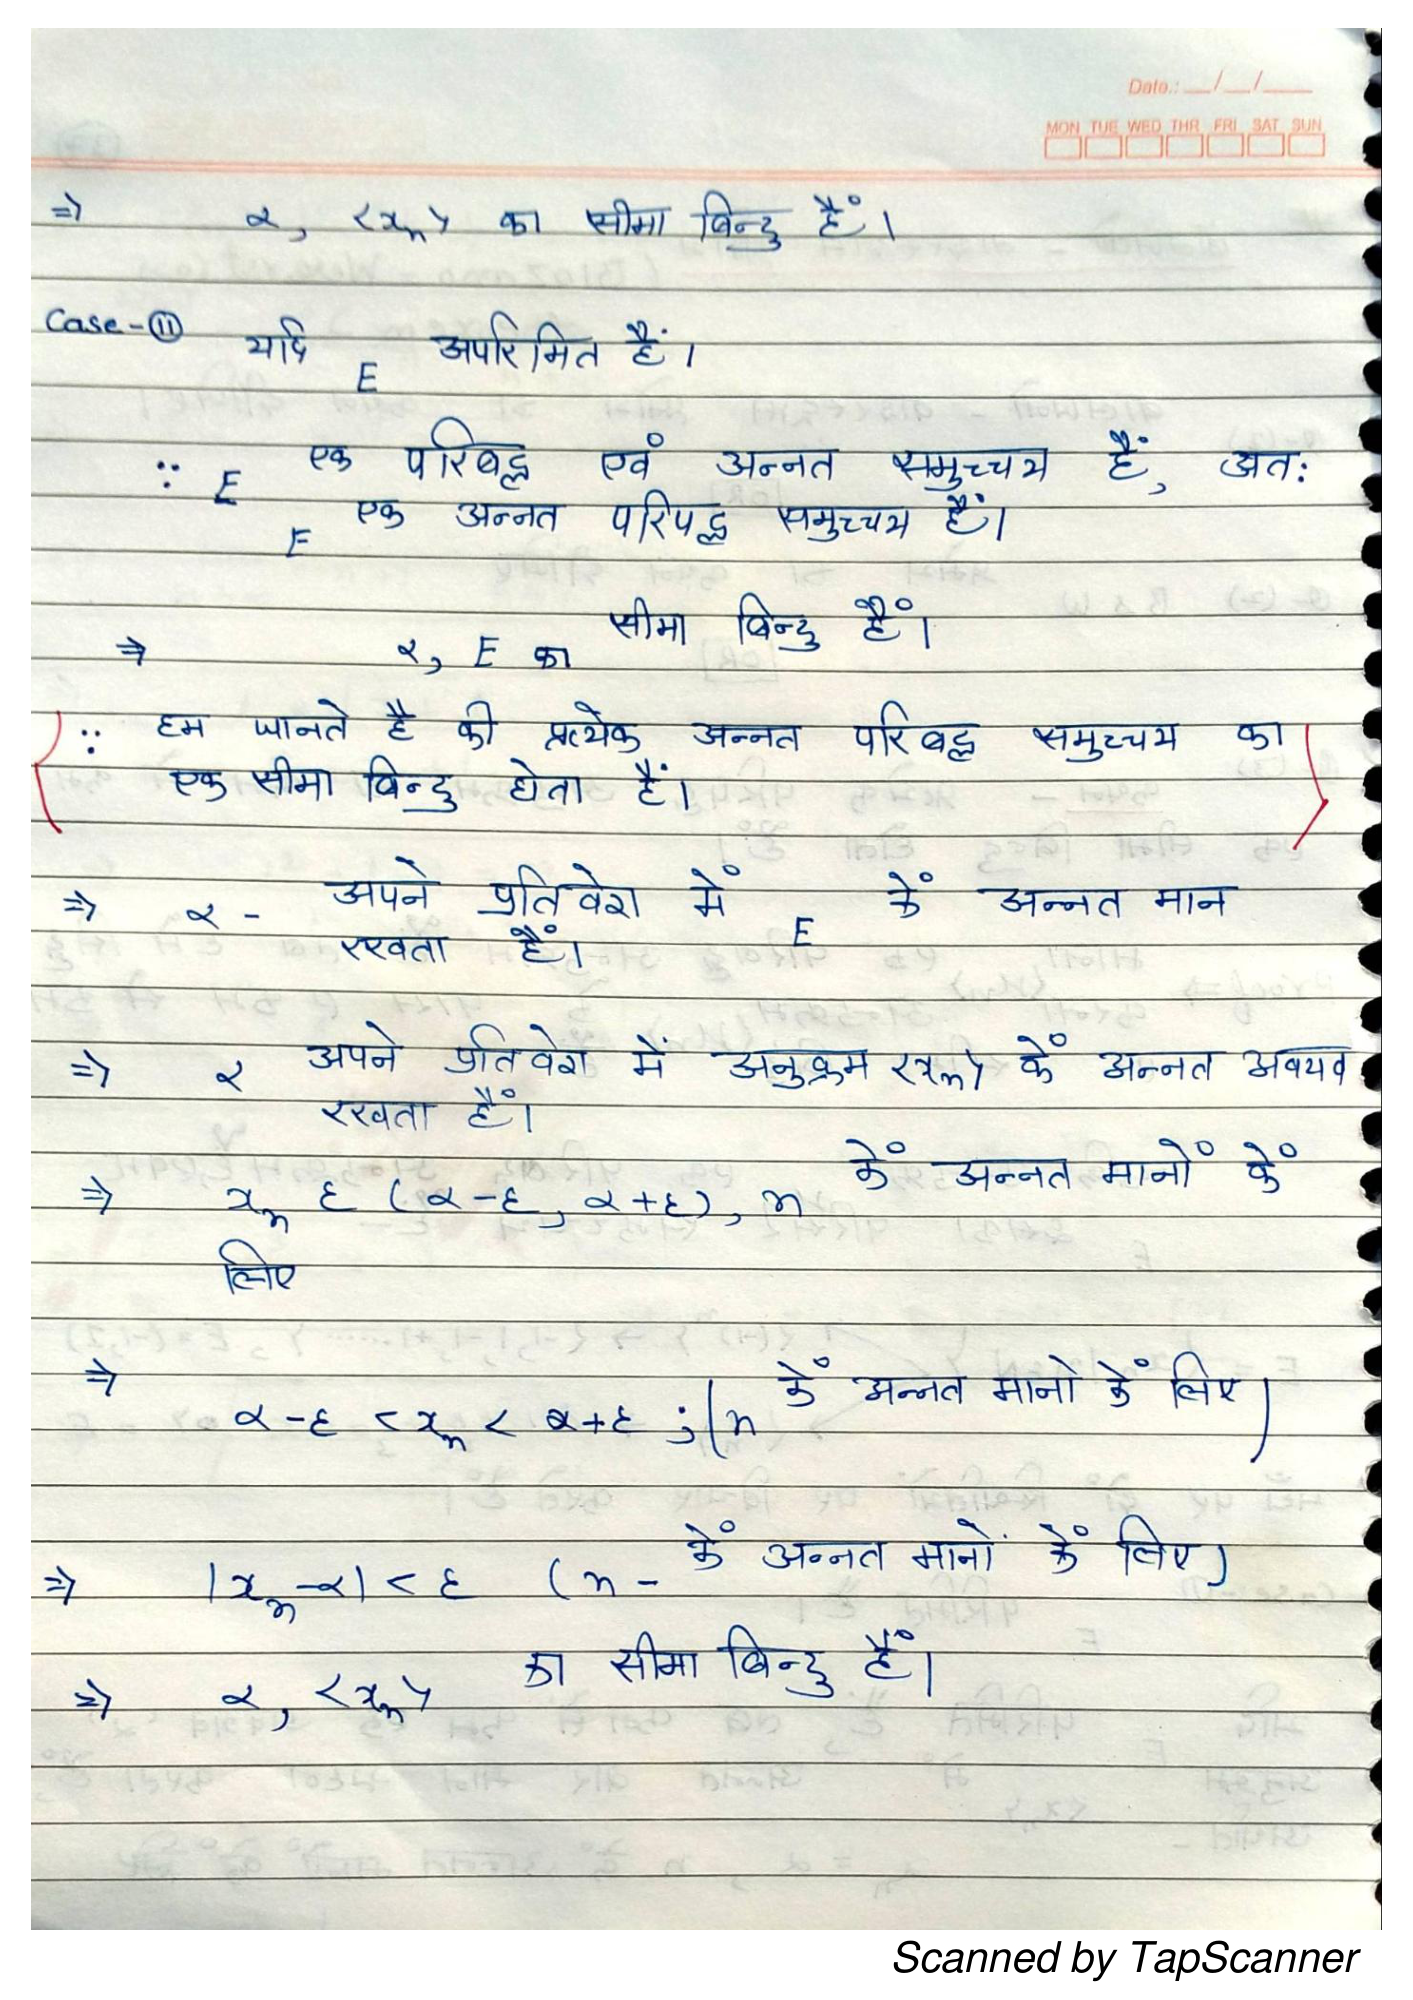 Date.: __/__/___
MON TUE WED THR FRI SAT SUN
⇒ α, <xₙ> का सीमा बिन्दु हैं।
Case-⑪ यदि E अपरिमित हैं।
∵ E एक परिबद्ध एवं अन्नत समुच्चय हैं, अत:
E एक अन्नत परिपद्ध समुच्चय हैं।
⇒ α, E का सीमा बिन्दु हैं।
∵ हम जानते है की प्रत्येक अन्नत परिबद्ध समुच्चय का
एक सीमा बिन्दु होता हैं।
⇒ α - अपने प्रतिवेश में E कें अन्नत मान
रखता हैं।
⇒ α अपने प्रतिवेश में अनुक्रम <xₙ> कें अन्नत अवयव
रखता हैं।
⇒ xₙ ε (α-ε, α+ε), n कें अन्नत मानों कें
लिए
⇒ α-ε < xₙ < α+ε ; (n कें अन्नत मानो कें लिए)
⇒ |xₙ-α| < ε (n - कें अन्नत मानों कें लिए)
⇒ α, <xₙ> का सीमा बिन्दु हैं।
Scanned by TapScanner